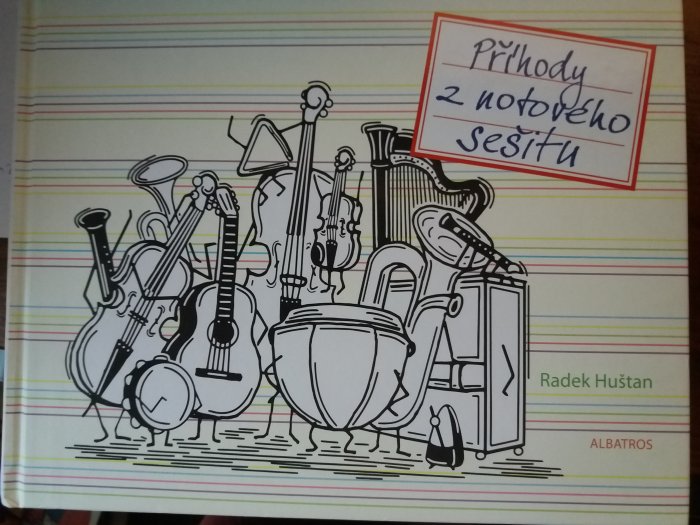 Příhody
z notového
sešitu
Radek Huštan
ALBATROS